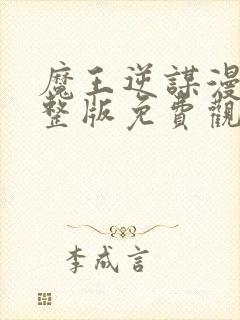 魔王逆謀漫
整版免費觀
李成言